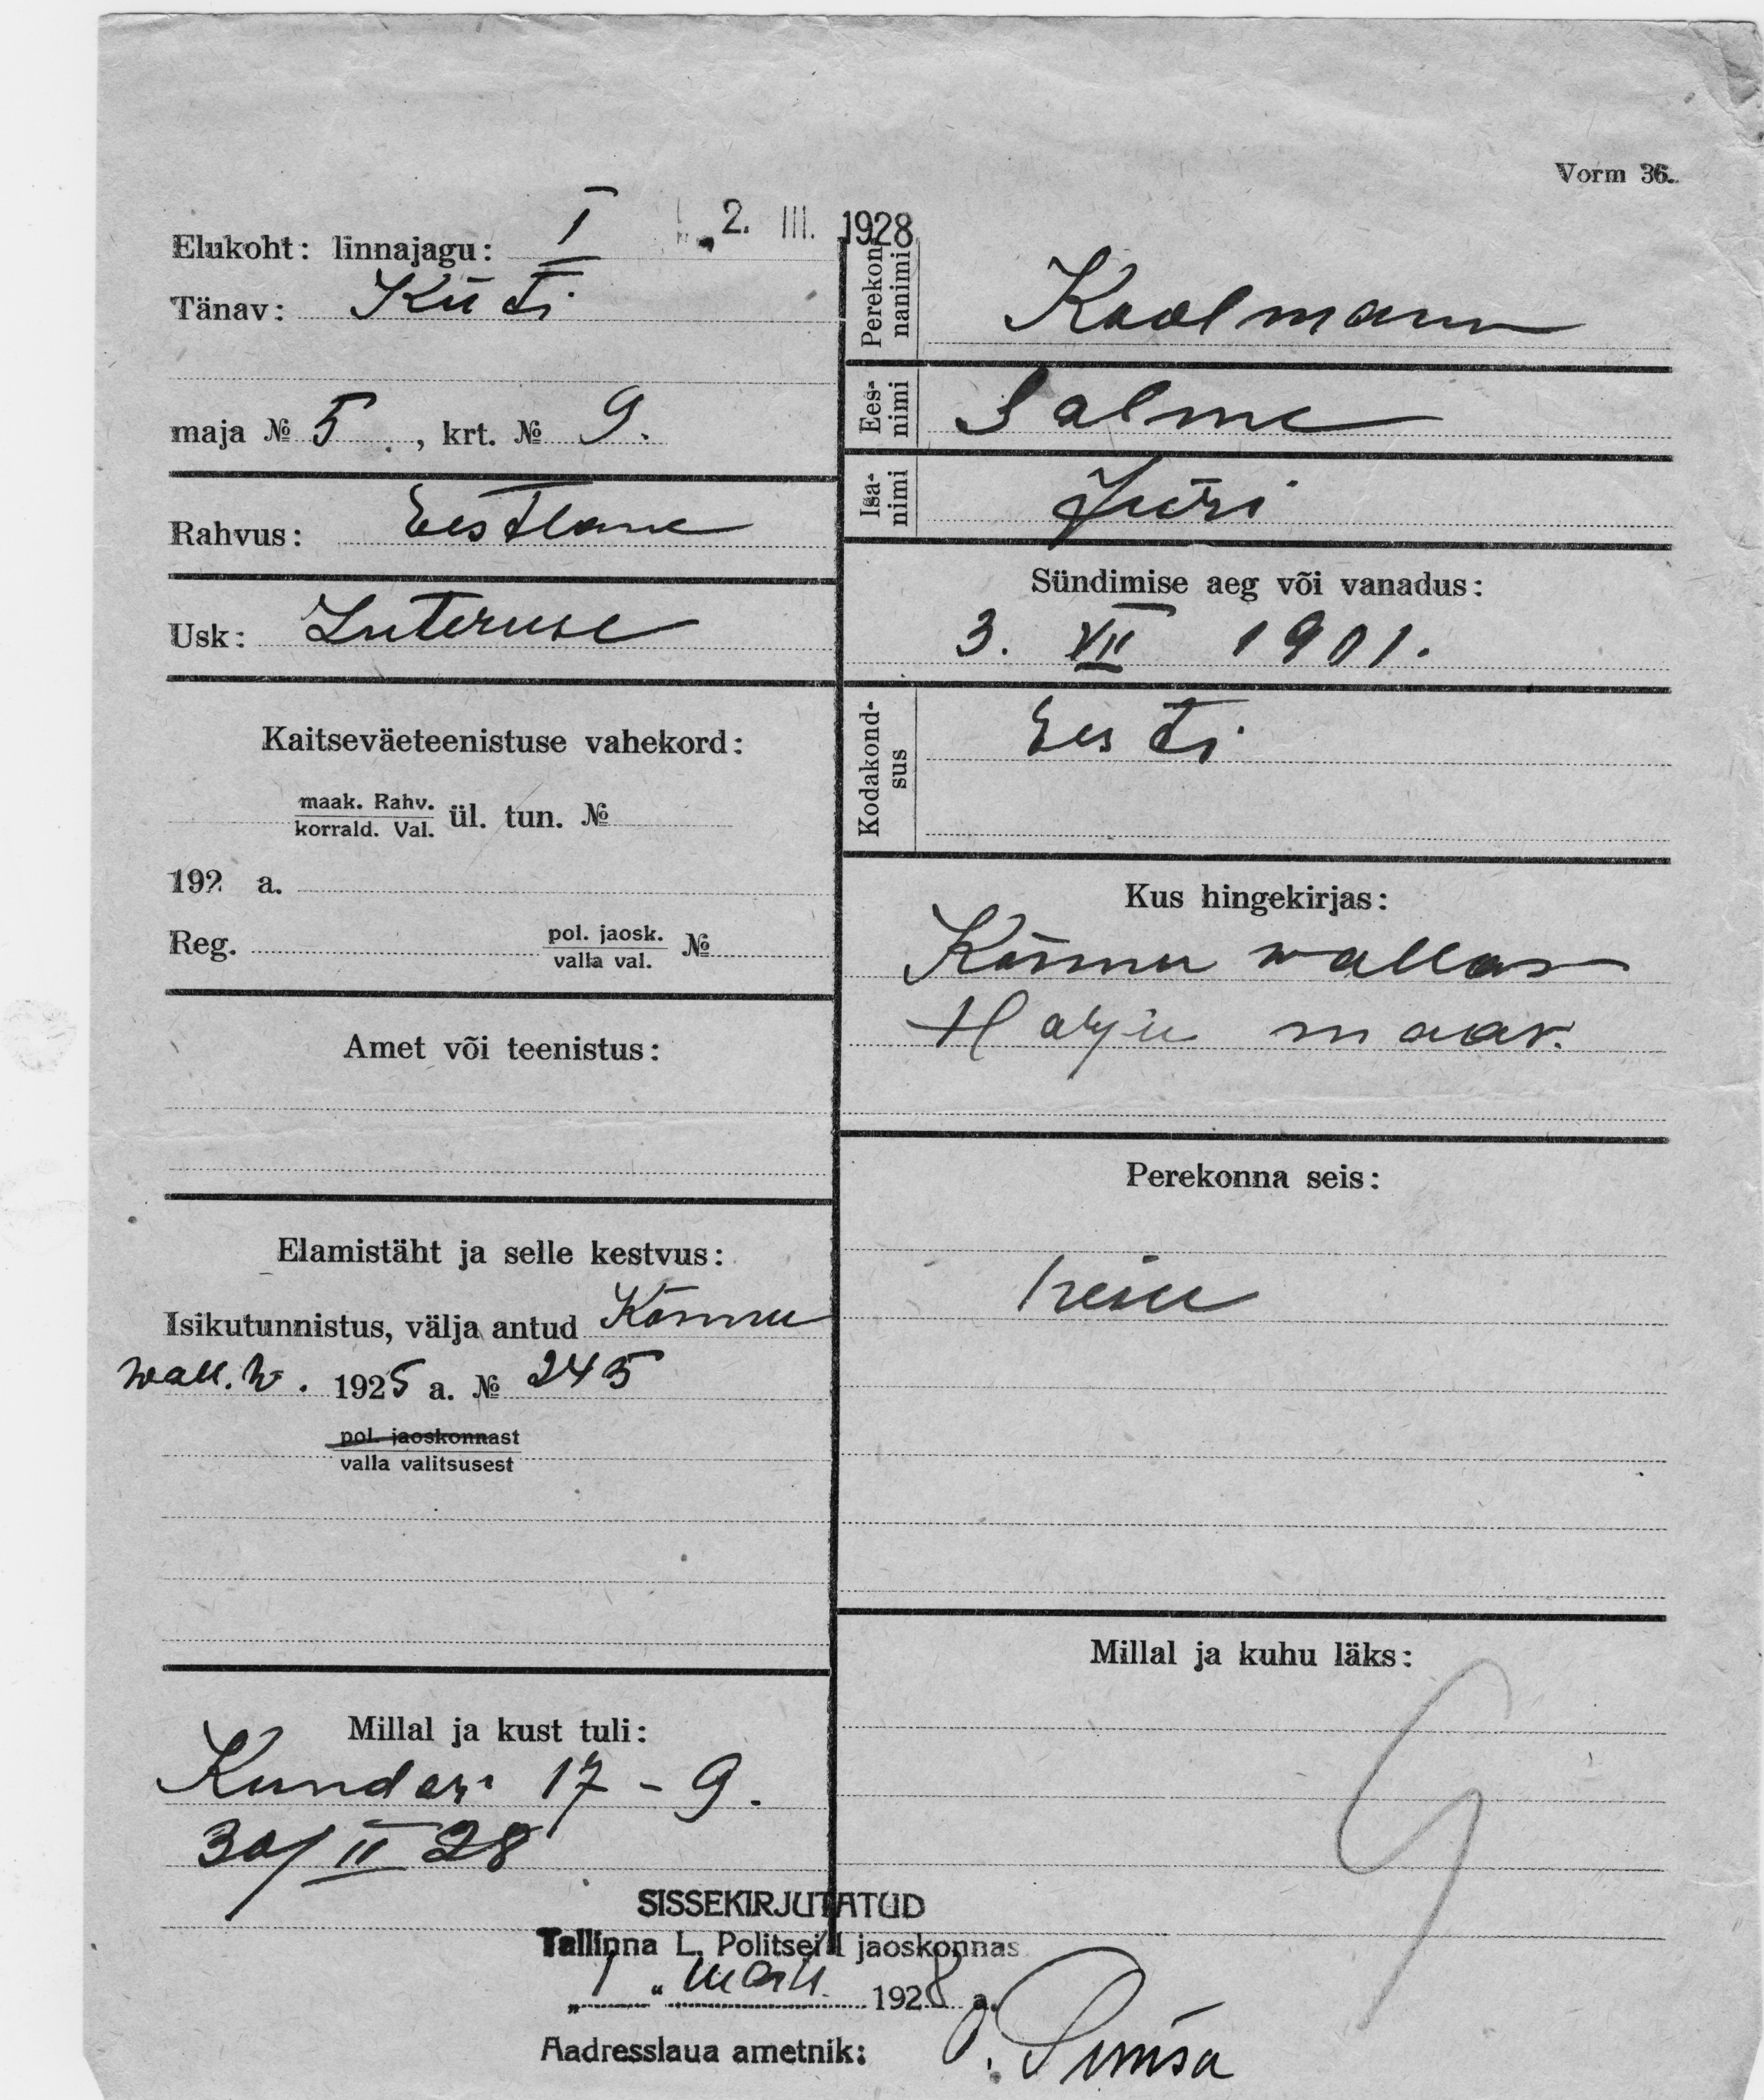 Vorm 36.
2. III. 1928
Elukoht: linnajagu: I
Tänav: Küti
maja № 5, krt. № 9.
Rahvus: Eestlane
Usk: Luteruse
Kaitseväeteenistuse vahekord:
maak. Rahv.
korrald. Val. ül. tun. №
192 a.
Reg. pol. jaosk. №
valla val.
Amet või teenistus:
Elamistäht ja selle kestvus:
Isikutunnistus, välja antud Kõnnu
wall. w. 1925 a. № 245
pol. jaoskonnast
valla valitsusest
Millal ja kust tuli:
Kunderi 17 - 9.
30/II 28
Perekonnanimi Koolmann
Ees-
nimi Salme
Isa-
nimi Jüri
Sündimise aeg või vanadus:
3. VII 1901.
Kodakond-
sus Eesti
Kus hingekirjas:
Kõnnu wallas
Harju maak.
Perekonna seis:
Millal ja kuhu läks:
SISSEKIRJUTATUD
Tallinna L. Politsei I jaoskonnas
„1“ 1928 a.
Aadresslaua ametnik: